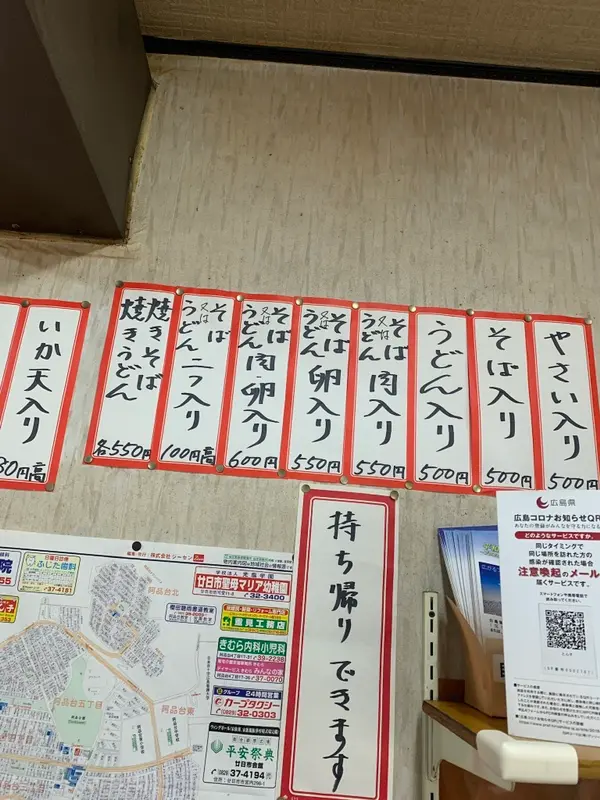 やさい入り
500円
そば入り
500円
うどん入り
500円
そば又はうどん肉入り
550円
そば又はうどん卵入り
550円
そば又はうどん肉・卵入り
600円
そば又はうどん二つ入り
100円高
焼きそば
焼きうどん
各550円
いか天入り
80円高
持ち帰りできます
広島県
広島コロナお知らせQR
どのようなサービスですか。
同じタイミングで
同じ場所を訪れた方の
感染が確認された場合
注意喚起のメール
届くサービスです。
日曜日診療
ふじた歯科
37-4151
阿品台北
阿品台五丁目
阿品台東
株式会社ジーセン
廿日市聖母マリア幼稚園
32-3400
重見工務店
きむら内科小児科
39-2238
みんなの家
37-0070
グループ 24時間営業
カープタクシー
32-0303
平安祭典
廿日市会館
37-4194